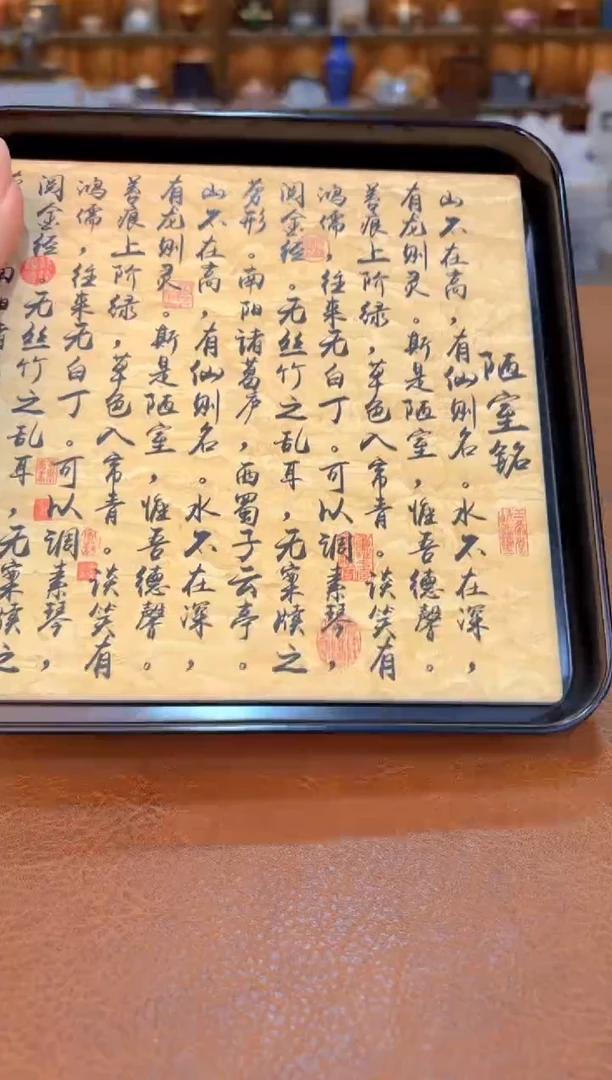 陋室铭
山不在高，有仙则名。水不在深，
有龙则灵。斯是陋室，惟吾德馨。
苔痕上阶绿，草色入帘青。谈笑有
鸿儒，往来无白丁。可以调素琴，
阅金经。无丝竹之乱耳，无案牍之
劳形。南阳诸葛庐，西蜀子云亭。
山不在高，有仙则名。水不在深，
有龙则灵。斯是陋室，惟吾德馨。
苔痕上阶绿，草色入帘青。谈笑有
鸿儒，往来无白丁。可以调素琴，
阅金经。无丝竹之乱耳，无案牍之
南阳诸